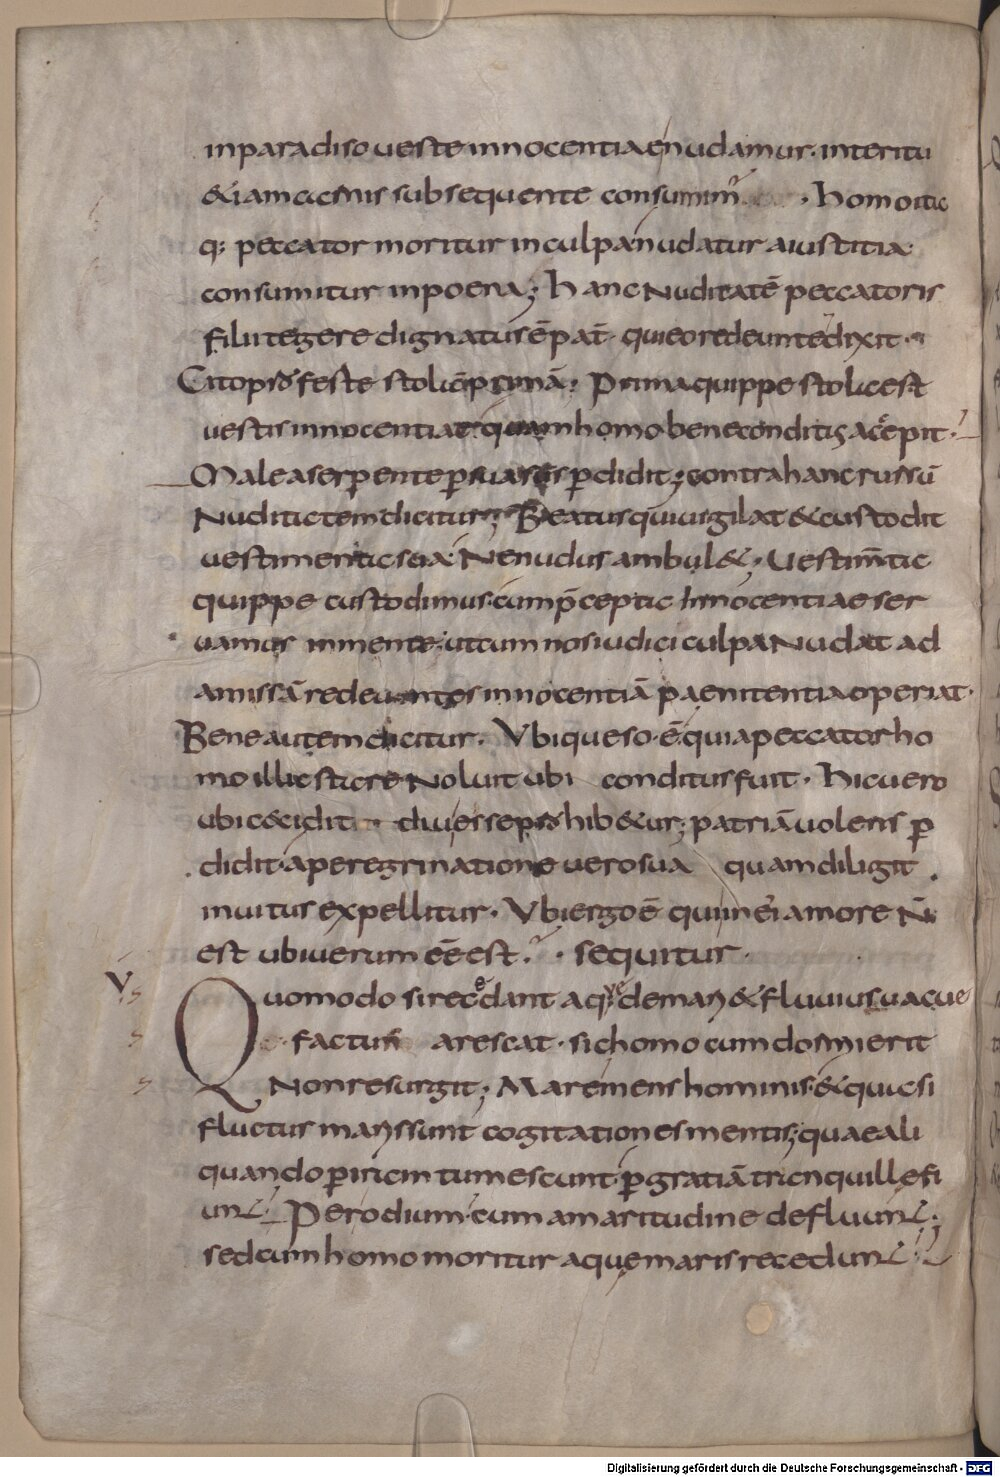 inparadiso ueste innocentiae nudamur. interitu
& iam carnis subsequente consumimur. homo itaq;
q; peccator moritur in culpa nudatur a iustitia
consumitur in poena; hanc nuditatē peccatoris
filii tegere dignatus ē pat̄ qui eo redeunte dixit.
Cito p̄ferte stolā primā; Prima quippe stola est
uestis innocentiae quam homo bene conditus accepit.
Male a serpente p̱suasus p̱didit; contra hanc russū
Nuditatem dicitur; Beatus qui uigilat & custodit
uestimenta sua. Ne nudus ambul&; Uestim̄ta
quippe custodimus. cum p̄cepta Innocentiae ser
uamus in mente. ut cum nos iudici culpa Nudat ad
amissā redeuntes innocentiā paenitentia operiat.
Bene autem dicitur. Ubi queso ē quia peccator ho
mo illic stare Noluit ubi conditus fuit. hic uero
ubi cecidit diu esse p̱hib&ur; patriā uolens p̱
didit. a peregrinatione uero sua quam diligit
inuitus expellitur. Ubi ergo ē qui in ei amore N̄
est ubi uerum eē est. sequitur.
V
Quomodo si recedant aque de mari & fluuius uacue
factus arescat. sic homo cum dormierit
Non resurgit; Mare mens hominis. & quasi
fluctus maris sunt cogitationes mentis; quae ali
quando p̱ iram tumescunt. p̱ gratiā tranquille fi
unt. Per odium cum amaritudine defluunt;
sed cum homo moritur aque maris recedunt
Digitalisierung gefördert durch die Deutsche Forschungsgemeinschaft - DFG